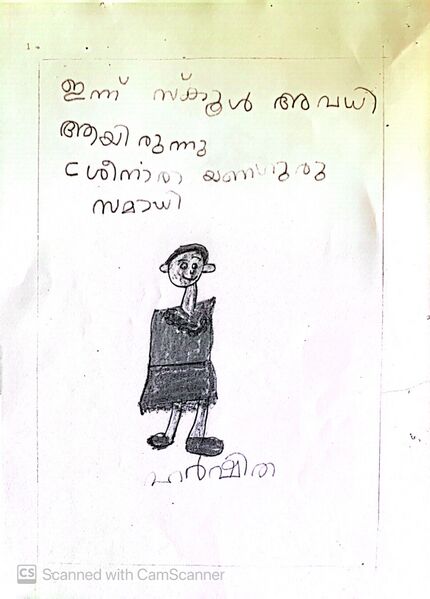 ഇന്ന് സ്ക്കൂൾ അവധി
ആയിരുന്നു
ശ്രീനാരായണഗുരു
സമാധി
ഹർഷിത
CS Scanned with CamScanner